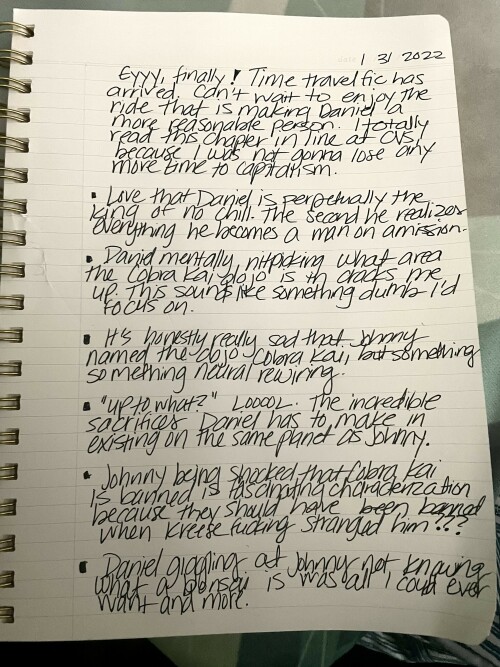 1 31 2022
Eyyy, finally! Time travel fic has
arrived. Can't wait to enjoy the
ride that is making Daniel a
more reasonable person. I totally
read this chaper in line at CVS
because I was not gonna lose any
more time to capitalism.
▪ Love that Daniel is perpetually the
king of no chill. The second he realizes
everything he becomes a man on a mission.
▪ Daniel mentally nitpicking what area
the Cobra Kai dojo is in cracks me
up. This sounds like something dumb I'd
focus on.
▪ It's honestly really sad that Johnny
named the dojo Cobra Kai, but something
something neural rewiring.
▪ "up to what?" LOOOL. The incredible
sacrifices Daniel has to make in
existing on the same planet as Johnny.
▪ Johnny being shocked that Cobra Kai
is banned is fascinating characterization
because they should have been banned
when Kreese fucking strangled him???
▪ Daniel giggling at Johnny not knowing
what a bonsai is was all I could ever
want and more.